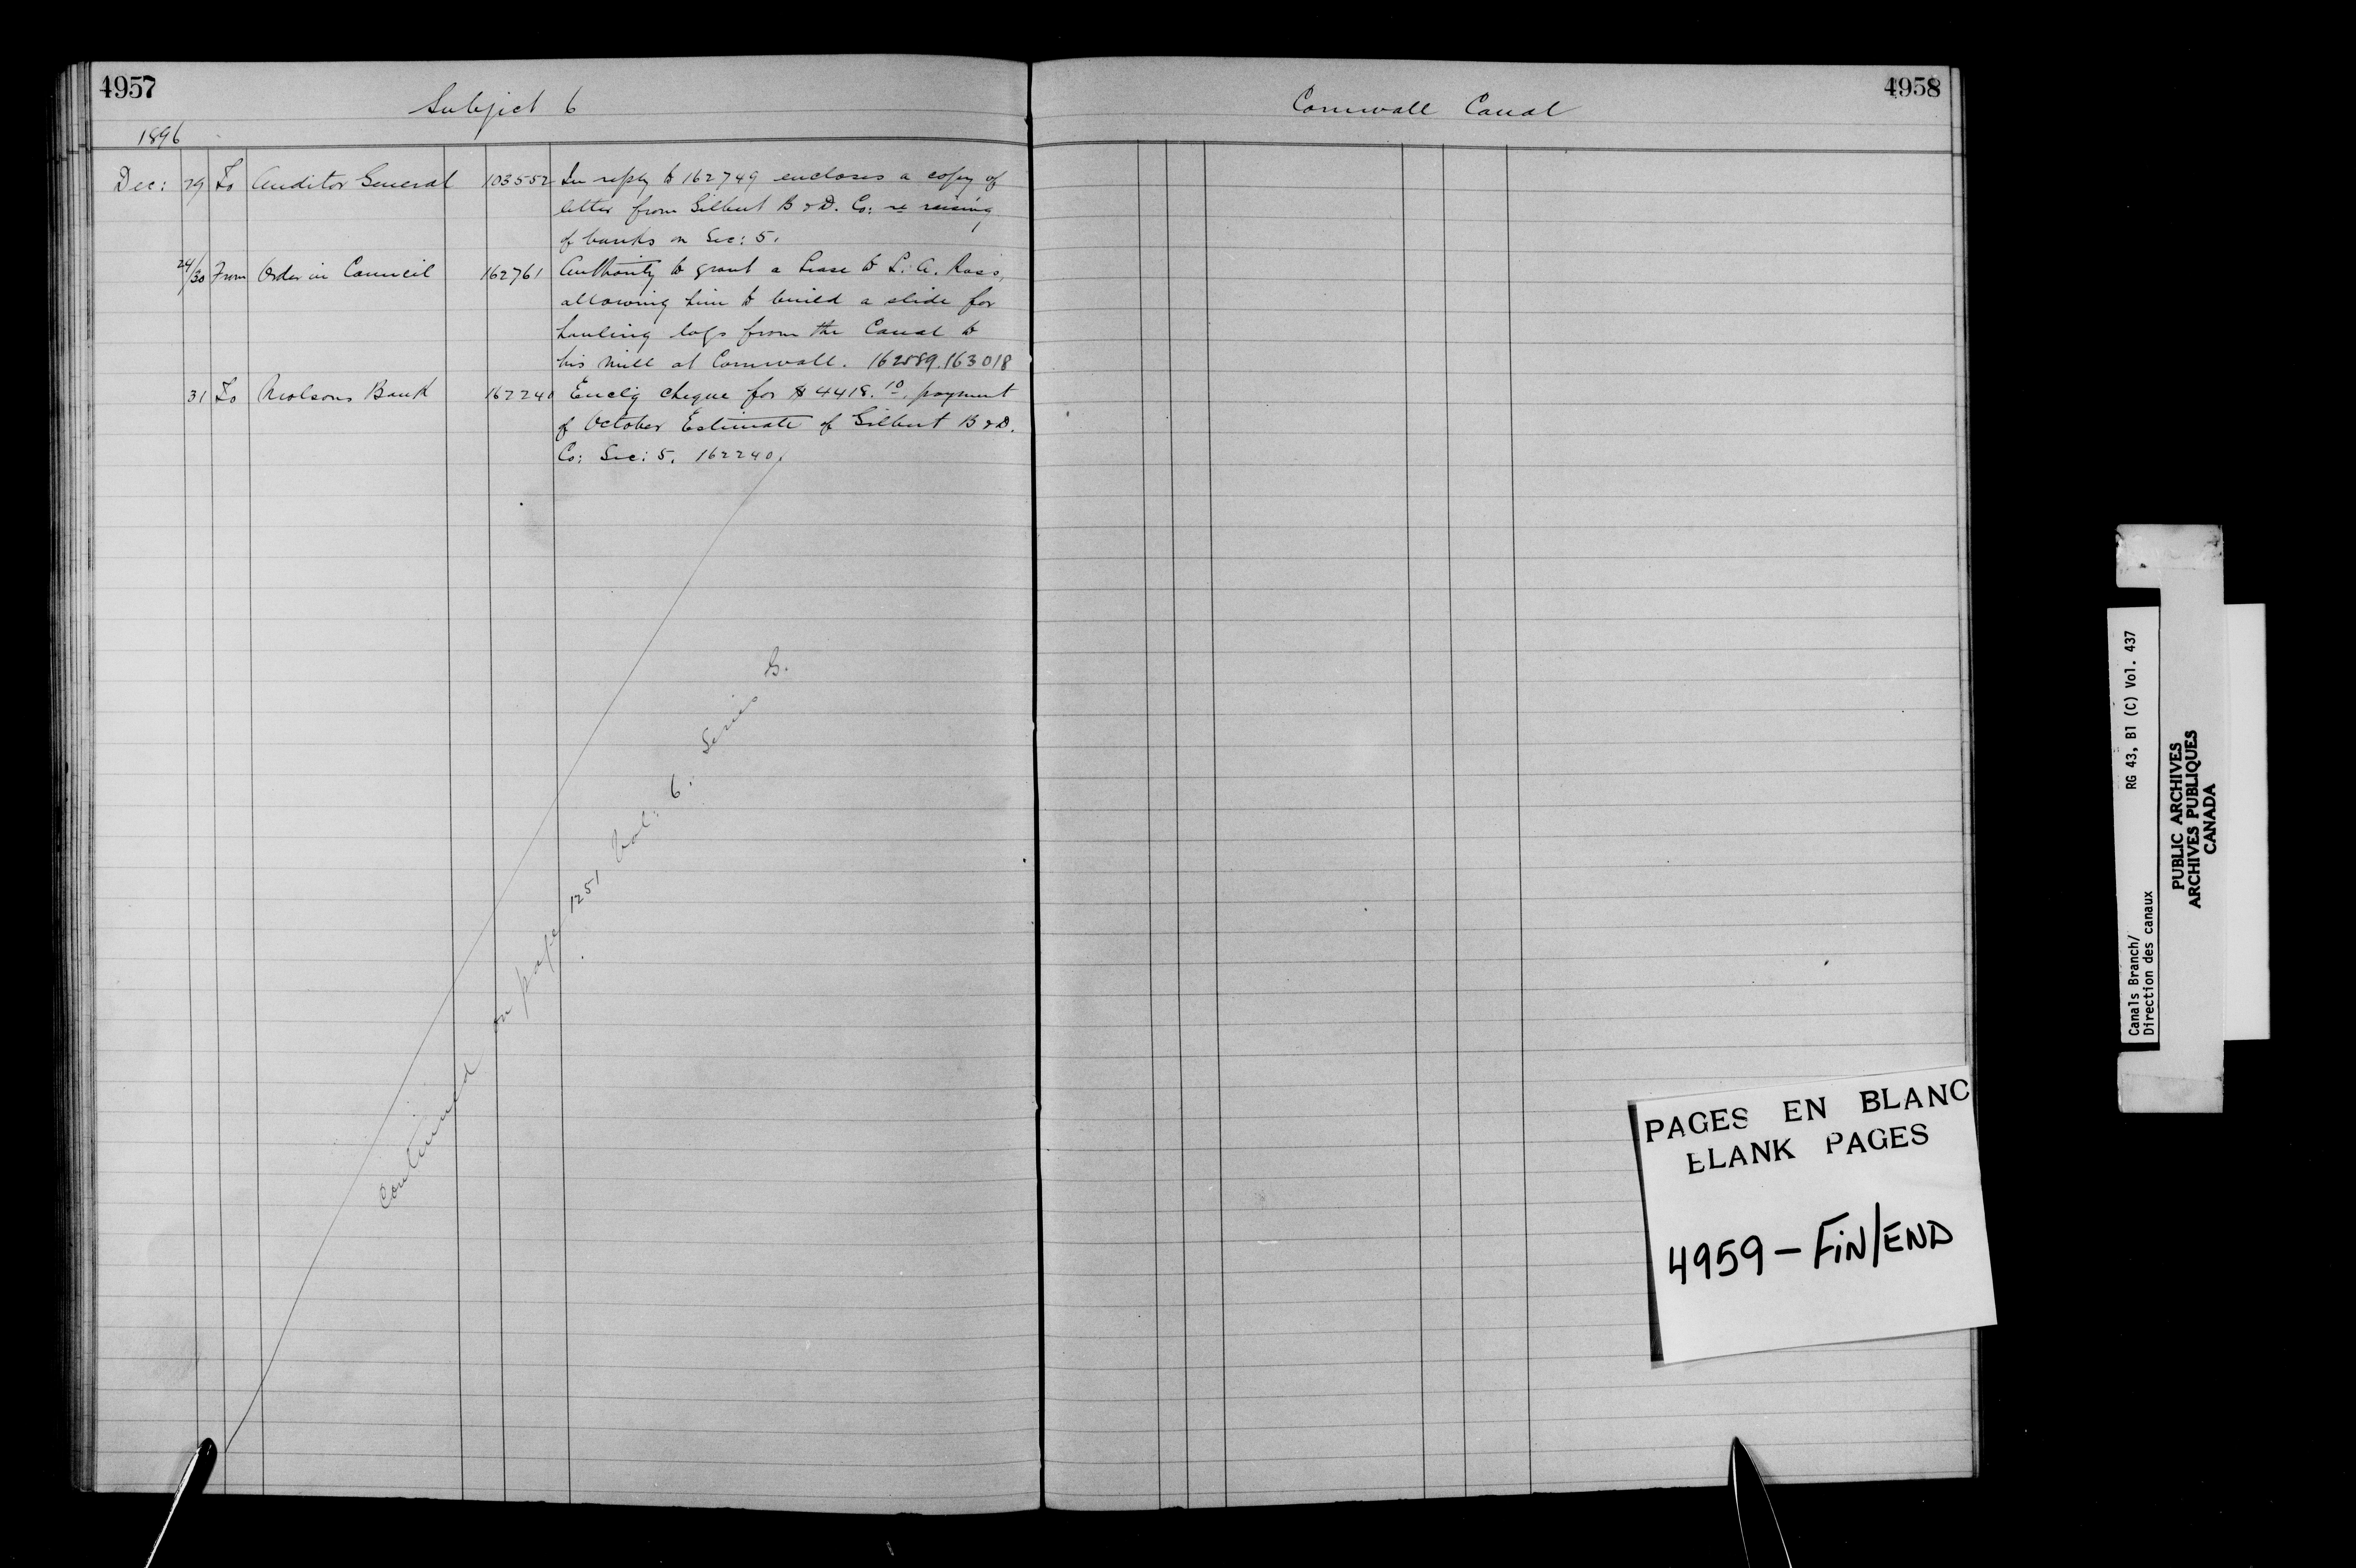 4957
Subject 6
1896
Dec: 29 To Auditor General 103552 In reply to 162749 encloses a copy of
letter from Gilbert B & D. Co: re raising
of banks on Sec: 5.
24/30 From Order in Council 162761 Authority to grant a Lease to L. A. Ross,
allowing him to build a slide for
hauling logs from the Canal to
his Mill at Cornwall. 162889.163018
31 To Molsons Bank 162240 Enclg Cheque for $4418.10, payment
of October Estimate of Gilbert B & D.
Co: Sec: 5. 162240.
Continued on page 1251 Vol: 6. Series G.
4958
Cornwall Canal
PAGES EN BLANC
BLANK PAGES
4959 - FIN/END
Canals Branch/ RG 43, B1 (C) Vol. 437
Direction des canaux
PUBLIC ARCHIVES
ARCHIVES PUBLIQUES
CANADA